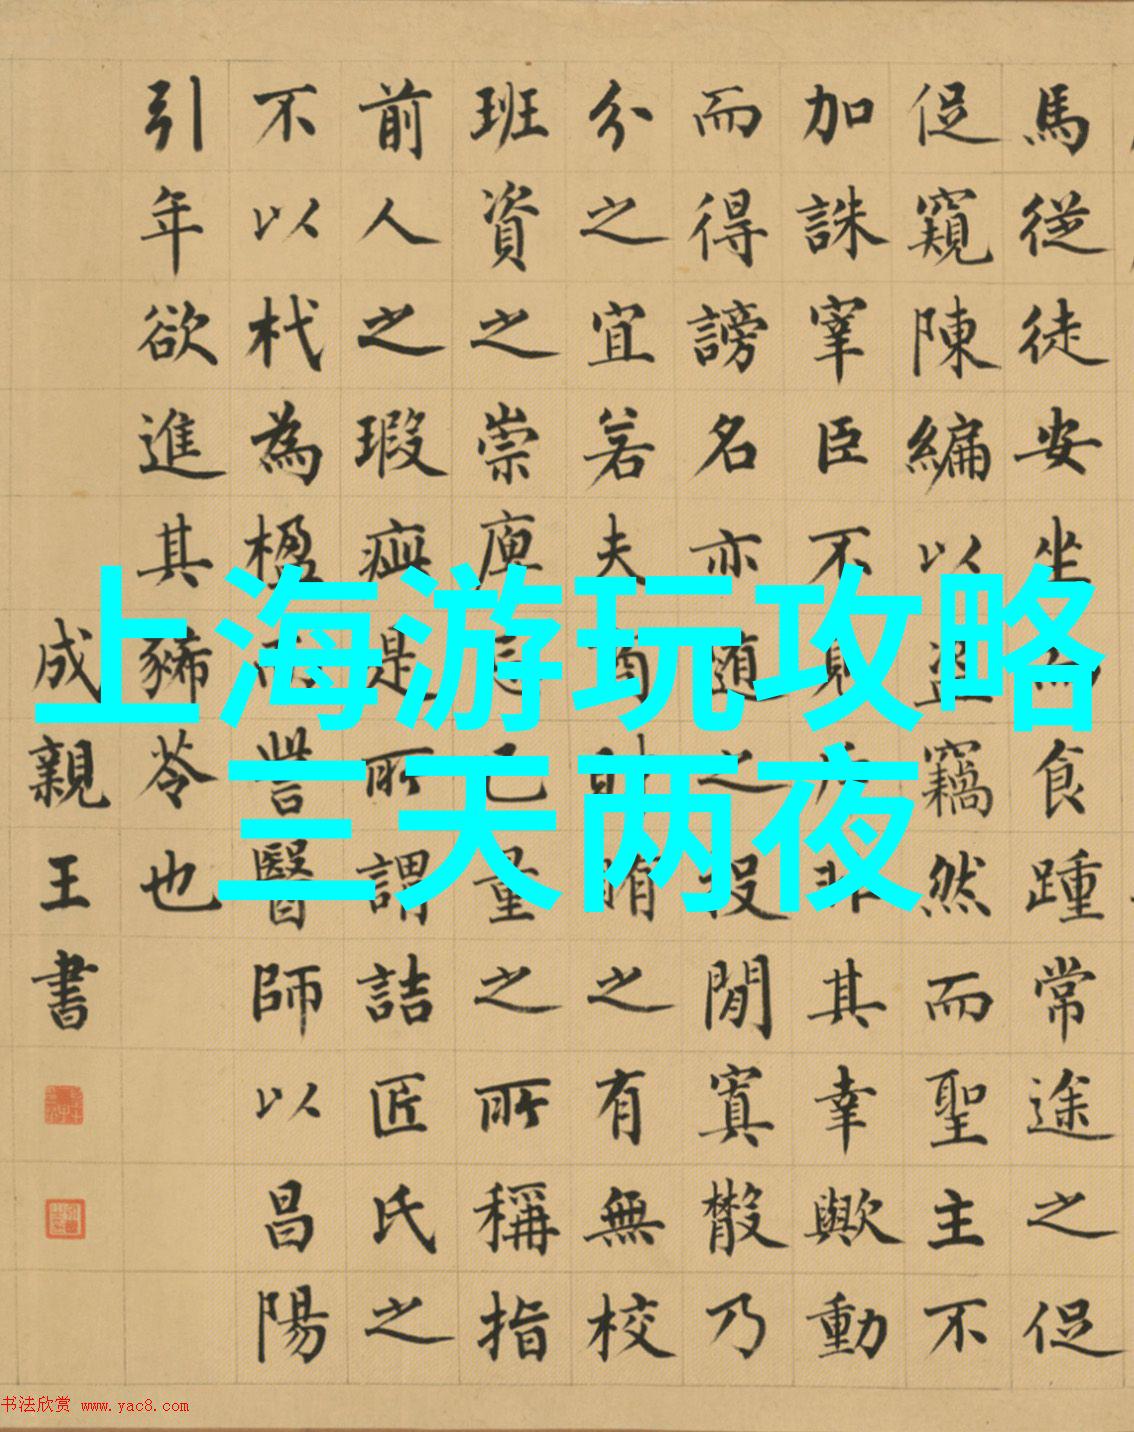 馬從徒安坐而食踵常途之促
促窺陳編以盜竊然而聖主不
加誅宰臣不見斥非其幸歟動
而得謗名亦隨之投閒寘散乃
分之宜若夫商財賄之有無校
班資之崇庳忘己量之所稱指
前人之瑕疵是所謂詰匠氏之
不以杙為楹而訾醫師以昌陽
引年欲進其豨苓也
成親王書
上海游玩攻略
三天两夜
书法欣赏 www.yac8.com